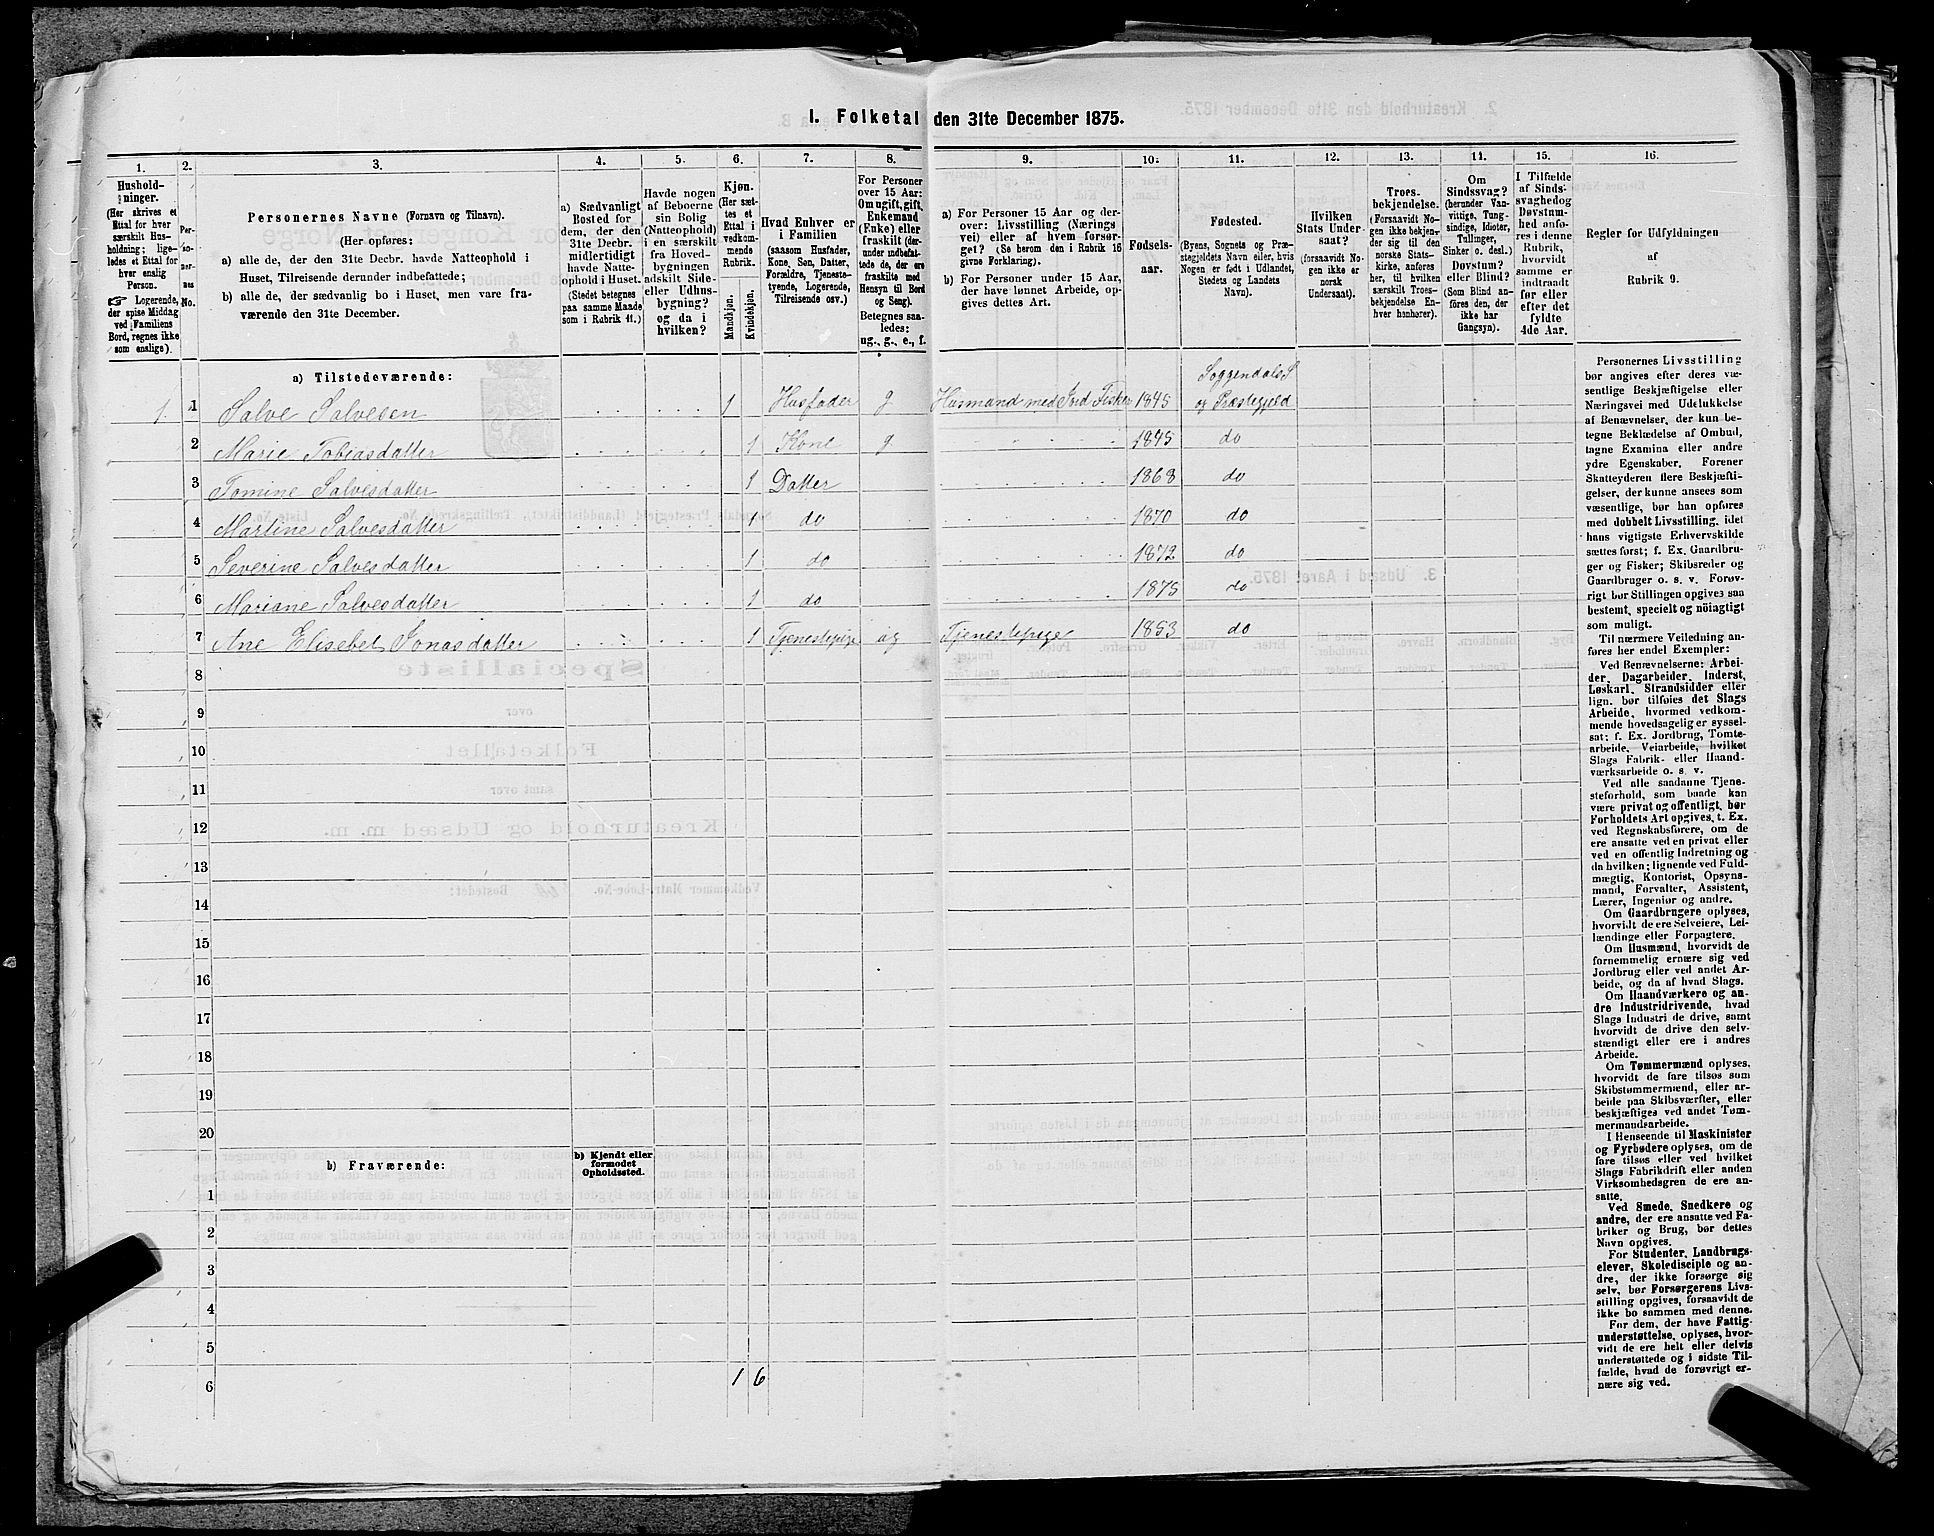 I. Folketal den 31te December 1875.
1.
Hushold-
ninger.
(Her skrives et
Ettal for hver
særskilt Hus-
holdning; lige-
ledes et Ettal for
hver enslig
Person.
☞ Logerende,
der spise Middag
ved Familiens
Bord, regnes ikke
som enslige).
2.
Per-
so-
ner-
nes
No.
3.
Personernes Navne (Fornavn og Tilnavn).
(Her opføres:
a) alle de, der den 31te Decbr. havde Natteophold i
Huset, Tilreisende derunder indbefattede;
b) alle de, der sædvanlig bo i Huset, men vare fra-
værende den 31te December.
4.
a) Sædvanligt
Bosted for
dem, der den
31te Decbr.
midlertidigt
havde Natte-
ophold i Huset.
(Stedet betegnes
paa samme Maade
som i Rubrik 11.)
5.
Havde nogen
af Beboerne
sin Bolig
(Natteophold)
i en særskilt
fra Hoved-
bygningen
adskilt Side-
eller Udhus-
bygning?
og da i
hvilken?
6.
Kjøn.
(Her sæt-
tes et
Ettal i
vedkom-
mende
Rubrik.
Mandkjøn.
Kvindekjøn.
7.
Hvad Enhver er
i Familien
(saasom Husfader,
Kone, Søn, Datter,
Forældre, Tjeneste-
tyende, Logerende,
Tilreisende osv.)
8.
For Personer
over 15 Aar:
Om ugift, gift,
Enkemand
(Enke) eller
fraskilt (der-
under indbefat-
tede de, der ere
fraskilte med
Hensyn til Bord
og Seng).
Betegnes saa-
ledes:
ug., g., e., f.
9.
a) For Personer 15 Aar og der-
over: Livsstilling (Nærings
vei) eller af hvem forsør-
get? (Se herom den i Rubrik 16
givne Forklaring).
b) For Personer under 15 Aar,
der have lønnet Arbeide, op-
gives dettes Art.
10.
Fødsels-
aar.
11.
Fødested.
(Byens, Sognets og Præ-
stegjeldets Navn eller, hvis
Nogen er født i Udlandet,
Stedets og Landets
Navn).
12.
Hvilken
Stats Under-
saat?
(forsaavidt No-
gen ikke er
norsk
Undersaat).
13.
Troes-
bekjendelse.
(Forsaavidt No-
gen ikke bekjen-
der sig til den
norske Stats-
kirke, anføres
her, til hvilken
særskilt Troes-
bekjendelse En-
hver henhører).
14.
Om
Sindssvag?
(herunder Van-
vittige, Tung-
sindige, Idioter,
Tullinger,
Sinker o. desl.)
Døvstum?
eller Blind?
(Som Blind an-
føres den, der
ikke har
Gangsyn).
15.
I Tilfælde
af Sinds-
svaghed og
Døvstum-
hed anfø-
res i denne
Rubrik,
hvorvidt
samme er
indtraadt
før eller
efter det
fyldte
4de Aar.
16.
Regler for Udfyldningen
af
Rubrik 9.
a) Tilstedeværende:
Soggendals S
1. 1 Salve Salvesen 1 Husfader g Husmand med Jord Fisker 1845 og Præstegjeld
2 Marie Tobiasdatter 1 Kone g 1845 do
3 Tomine Salvesdatter 1 Datter 1868 do
4 Martine Salvesdatter 1 do 1870 do
5 Severine Salvesdatter 1 do 1872 do
6 Mariane Salvesdatter 1 do 1875 do
7 Ane Elisebet Jonasdatter 1 Tjenestepige ug Tjenestepige 1853 do
8
9
10
11
12
13
14
15
16
17
18
19
20
b) Fraværende:
b) Kjendt eller
formodet
Opholdssted.
1
2
3
4
5
6
1 6
Personernes Livsstilling
bør angives efter deres væ-
sentlige Beskjæftigelse eller
Næringsvei med Udelukkelse
af Benævnelser, der kun be-
tegne Beklædelse af Ombud,
tagne Examina eller andre
ydre Egenskaber. Forener
Skatteyderen flere Beskjæfti-
gelser, der kunne ansees som
væsentlige, bør han opføres
med dobbelt Livsstilling, idet
hans vigtigste Erhvervskilde
sættes først; f. Ex. Gaardbru-
ger og Fisker; Skibsreder og
Gaardbruger o. s. v. Forøv-
rigt bør Stillingen opgives saa
bestemt, specielt og nøiagtigt
som muligt.
Til nærmere Veiledning an-
føres her endel Exempler:
Ved Benævnelserne: Arbei-
der, Dagarbeider, Inderst,
Løskarl, Strandsidder eller
lign. bør tilføies det Slags
Arbeide, hvormed vedkom-
mende hovedsagelig er syssel-
sat; f. Ex. Jordbrug, Tomte-
arbeide, Veiarbeide, hvilket
Slags Fabrik- eller Haand-
værksarbeide o. s. v.
Ved alle saadanne Tjene-
steforhold, som baade kan
være privat og offentligt, bør
Forholdets Art opgives, t. Ex.
ved Regnskabsførere, om de
ere ansatte ved en privat eller
ved en offentlig Indretning og
da hvilken; lignende ved Fuld-
mægtig, Kontorist, Opsyns-
mand, Forvalter, Assistent,
Lærer, Ingeniør og andre.
Om Gaardbrugere oplyses,
hvorvidt de ere Selveiere, Lei-
lændinge eller Forpagtere.
Om Husmænd, hvorvidt de
fornemmelig ernære sig ved
Jordbrug eller ved andet Ar-
beide, og da af hvad Slags.
Om Haandværkere og an-
dre Industridrivende, hvad
Slags Industri de drive, samt
hvorvidt de drive den selv-
stændigt eller ere i andres
Arbeide.
Om Tømmermænd oplyses,
hvorvidt de fare tilsøs som
Skibstømmermænd, eller ar-
beide paa Skibsværfter, eller
beskjæftiges ved andet Tøm-
mermandsarbeide.
I Henseende til Maskinister
og Fyrbødere oplyses, om de
fare tilsøs eller ved hvilket
Slags Fabrikdrift eller anden
Virksomhedsgren de ere an-
satte.
Ved Smede, Snedkere og
andre, der ere ansatte ved Fa-
briker og Brug, bør dettes
Navn opgives.
For Studenter, Landbrugs-
elever, Skoledisciple og an-
dre, der ikke forsørge sig
selv, bør Forsørgerens Livs-
stilling opgives, forsaavidt de
ikke bo sammen med denne.
For dem, der have Fattig-
understøttelse, oplyses, hvor-
vidt de ere helt eller delvis
understøttede og i sidste Til-
fælde, hvad de forøvrigt er-
nære sig ved.